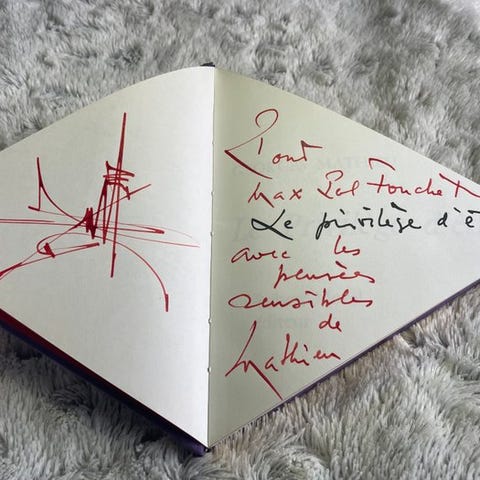 Pour
Max Pol Fouchet
Le privilège d'ê
avec les
pensées
sensibles
de
Mathieu